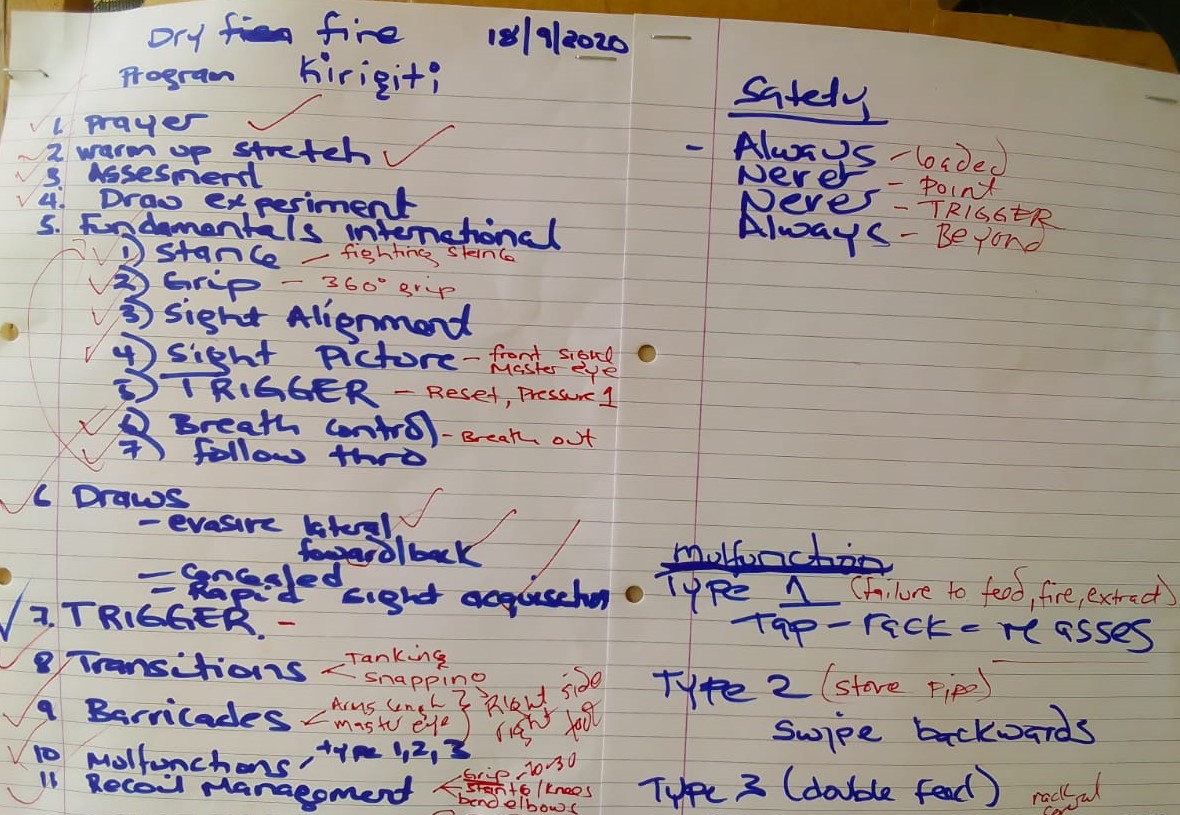 Dry fire 18/9/2020
Program Kirigiti
1. Prayer
2 warm up stretch
3 Assesment
4. Draw experiment
5. Fundamentals international
1) Stance - fighting stance
2) Grip - 360° grip
3) Sight Alignment
4) Sight Picture - front sight
Master eye
5) TRIGGER - Reset, Pressure 1
6) Breath control - Breath out
7) follow thro
6 Draws
- evasive lateral
foward/back
- Concealed
- Rapid sight acquisition
7. TRIGGER. -
8 Transitions < Tanking
Snapping
9 Barricades < Arms length } Right side
master eye } right foot
10 Malfunctions, type 1,2,3
11 Recoil Management < Grip - 70-30
Stance/knees
bend elbows
Safety
- Always - loaded
Never - Point
Never - TRIGGER
Always - Beyond
Mulfunction
Type 1 (failure to feed, fire, extract)
Tap - rack = re asses
Type 2 (stove pipe)
swipe backwards
Type 3 (double feed)